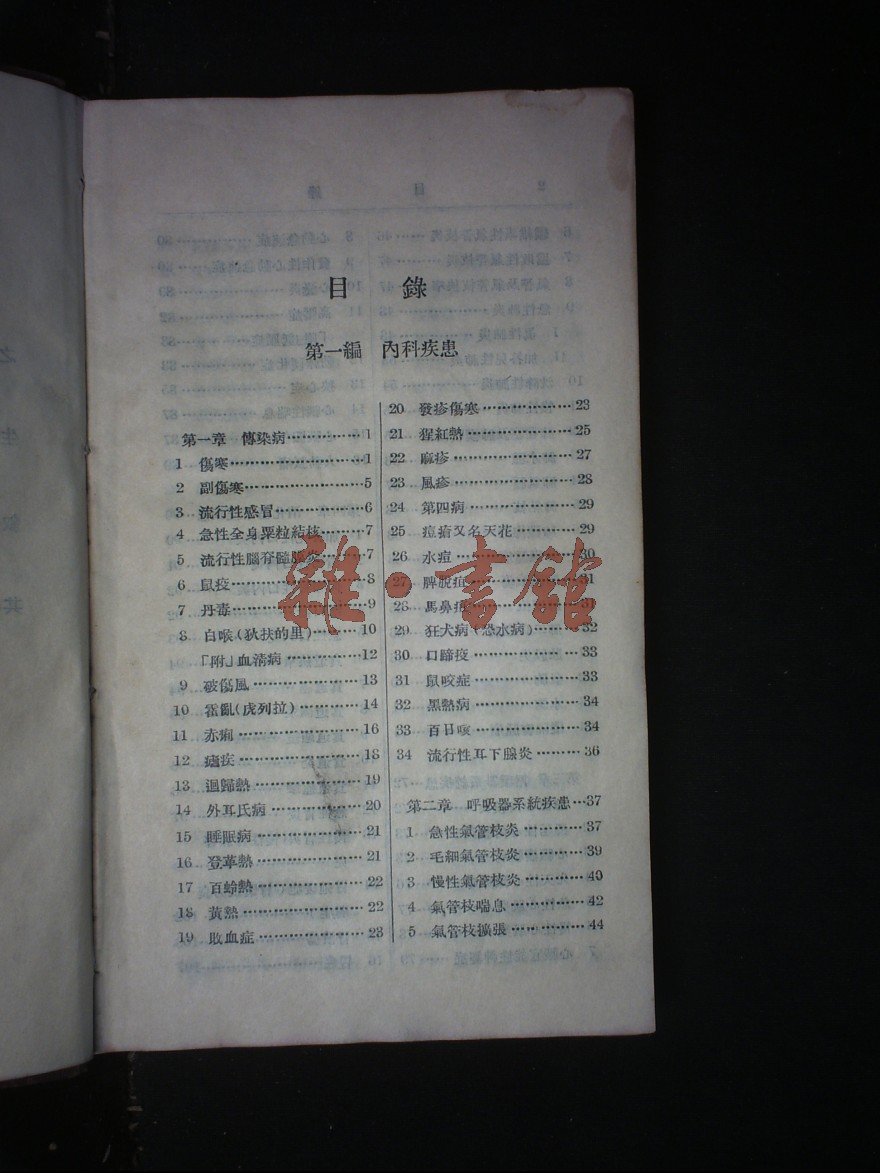 目 錄
第一編 內科疾患
第一章 傳染病⋯⋯1
1 傷寒⋯⋯1
2 副傷寒⋯⋯5
3 流行性感冒⋯⋯6
4 急性全身粟粒結核⋯⋯7
5 流行性腦脊髓膜炎⋯⋯7
6 鼠疫⋯⋯8
7 丹毒⋯⋯9
8 白喉(狄扶的里)⋯⋯10
「附」血清病⋯⋯12
9 破傷風⋯⋯13
10 霍亂(虎列拉)⋯⋯14
11 赤痢⋯⋯16
12 瘧疾⋯⋯18
13 迴歸熱⋯⋯19
14 外耳氏病⋯⋯20
15 睡眠病⋯⋯21
16 登革熱⋯⋯21
17 百蛉熱⋯⋯22
18 黃熱⋯⋯22
19 敗血症⋯⋯23
20 發疹傷寒⋯⋯23
21 猩紅熱⋯⋯25
22 麻疹⋯⋯27
23 風疹⋯⋯28
24 第四病⋯⋯29
25 痘瘡又名天花⋯⋯29
26 水痘⋯⋯30
27 脾脫疽⋯⋯31
28 馬鼻疽⋯⋯
29 狂犬病(恐水病)⋯⋯32
30 口蹄疫⋯⋯33
31 鼠咬症⋯⋯33
32 黑熱病⋯⋯34
33 百日咳⋯⋯34
34 流行性耳下腺炎⋯⋯36
第二章 呼吸器系統疾患⋯37
1 急性氣管枝炎⋯⋯37
2 毛細氣管枝炎⋯⋯39
3 慢性氣管枝炎⋯⋯40
4 氣管枝喘息⋯⋯42
5 氣管枝擴張⋯⋯44
雜·書館